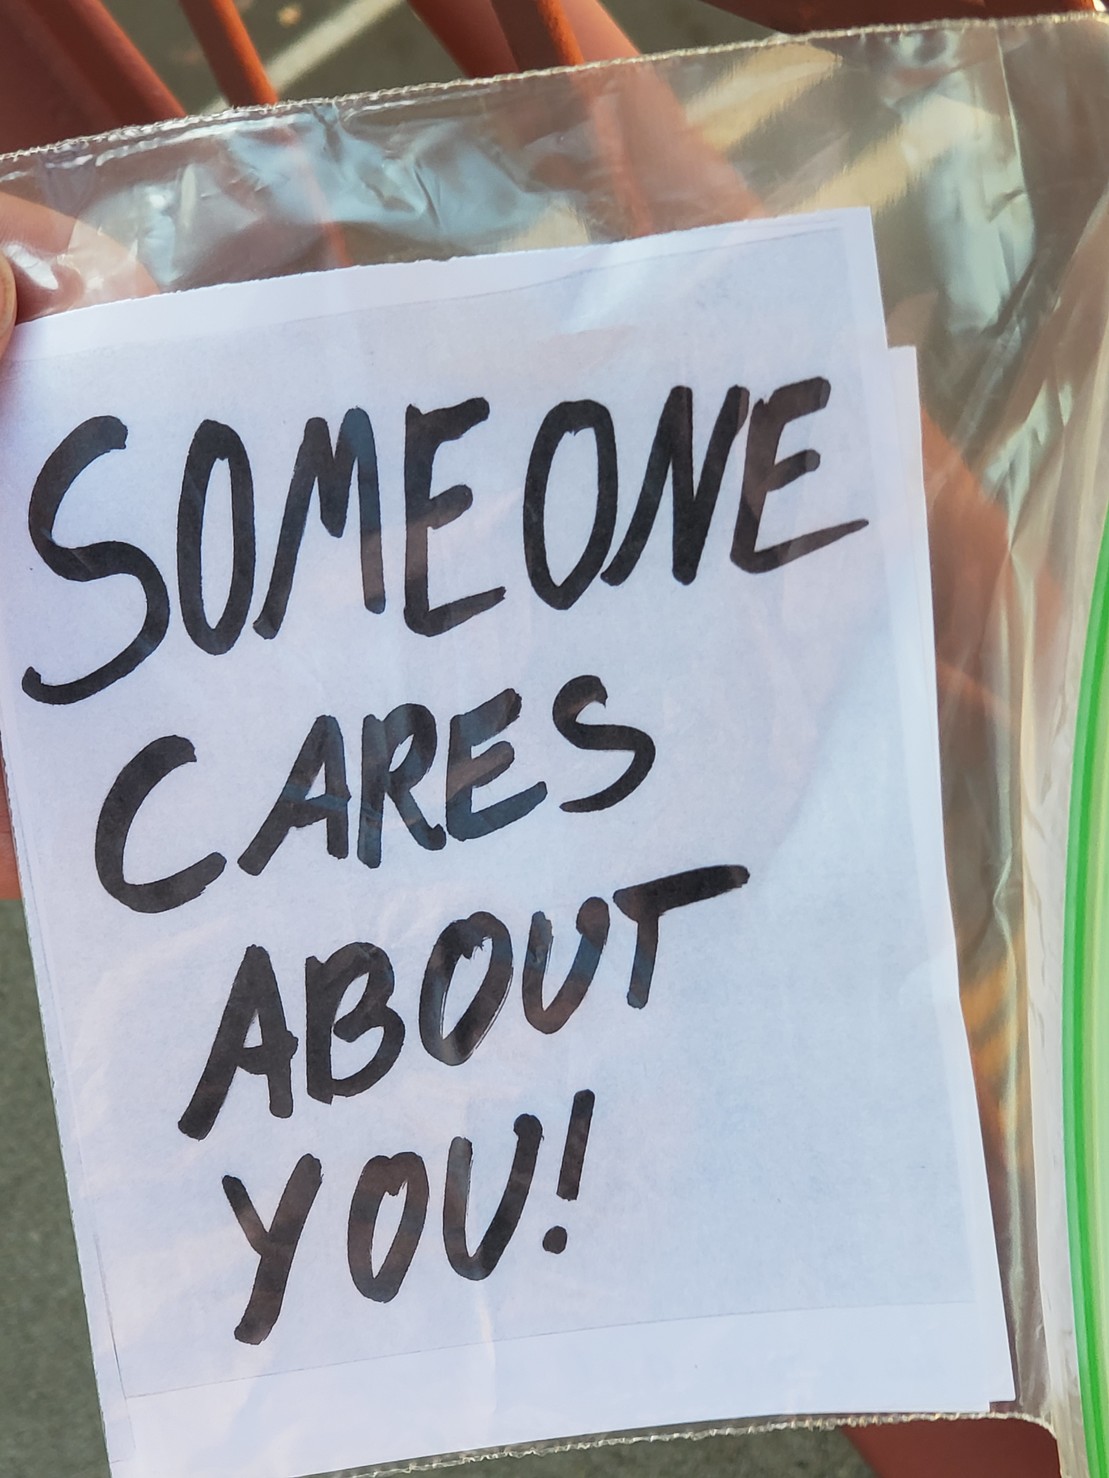 SOMEONE
CARES
ABOUT
YOU!